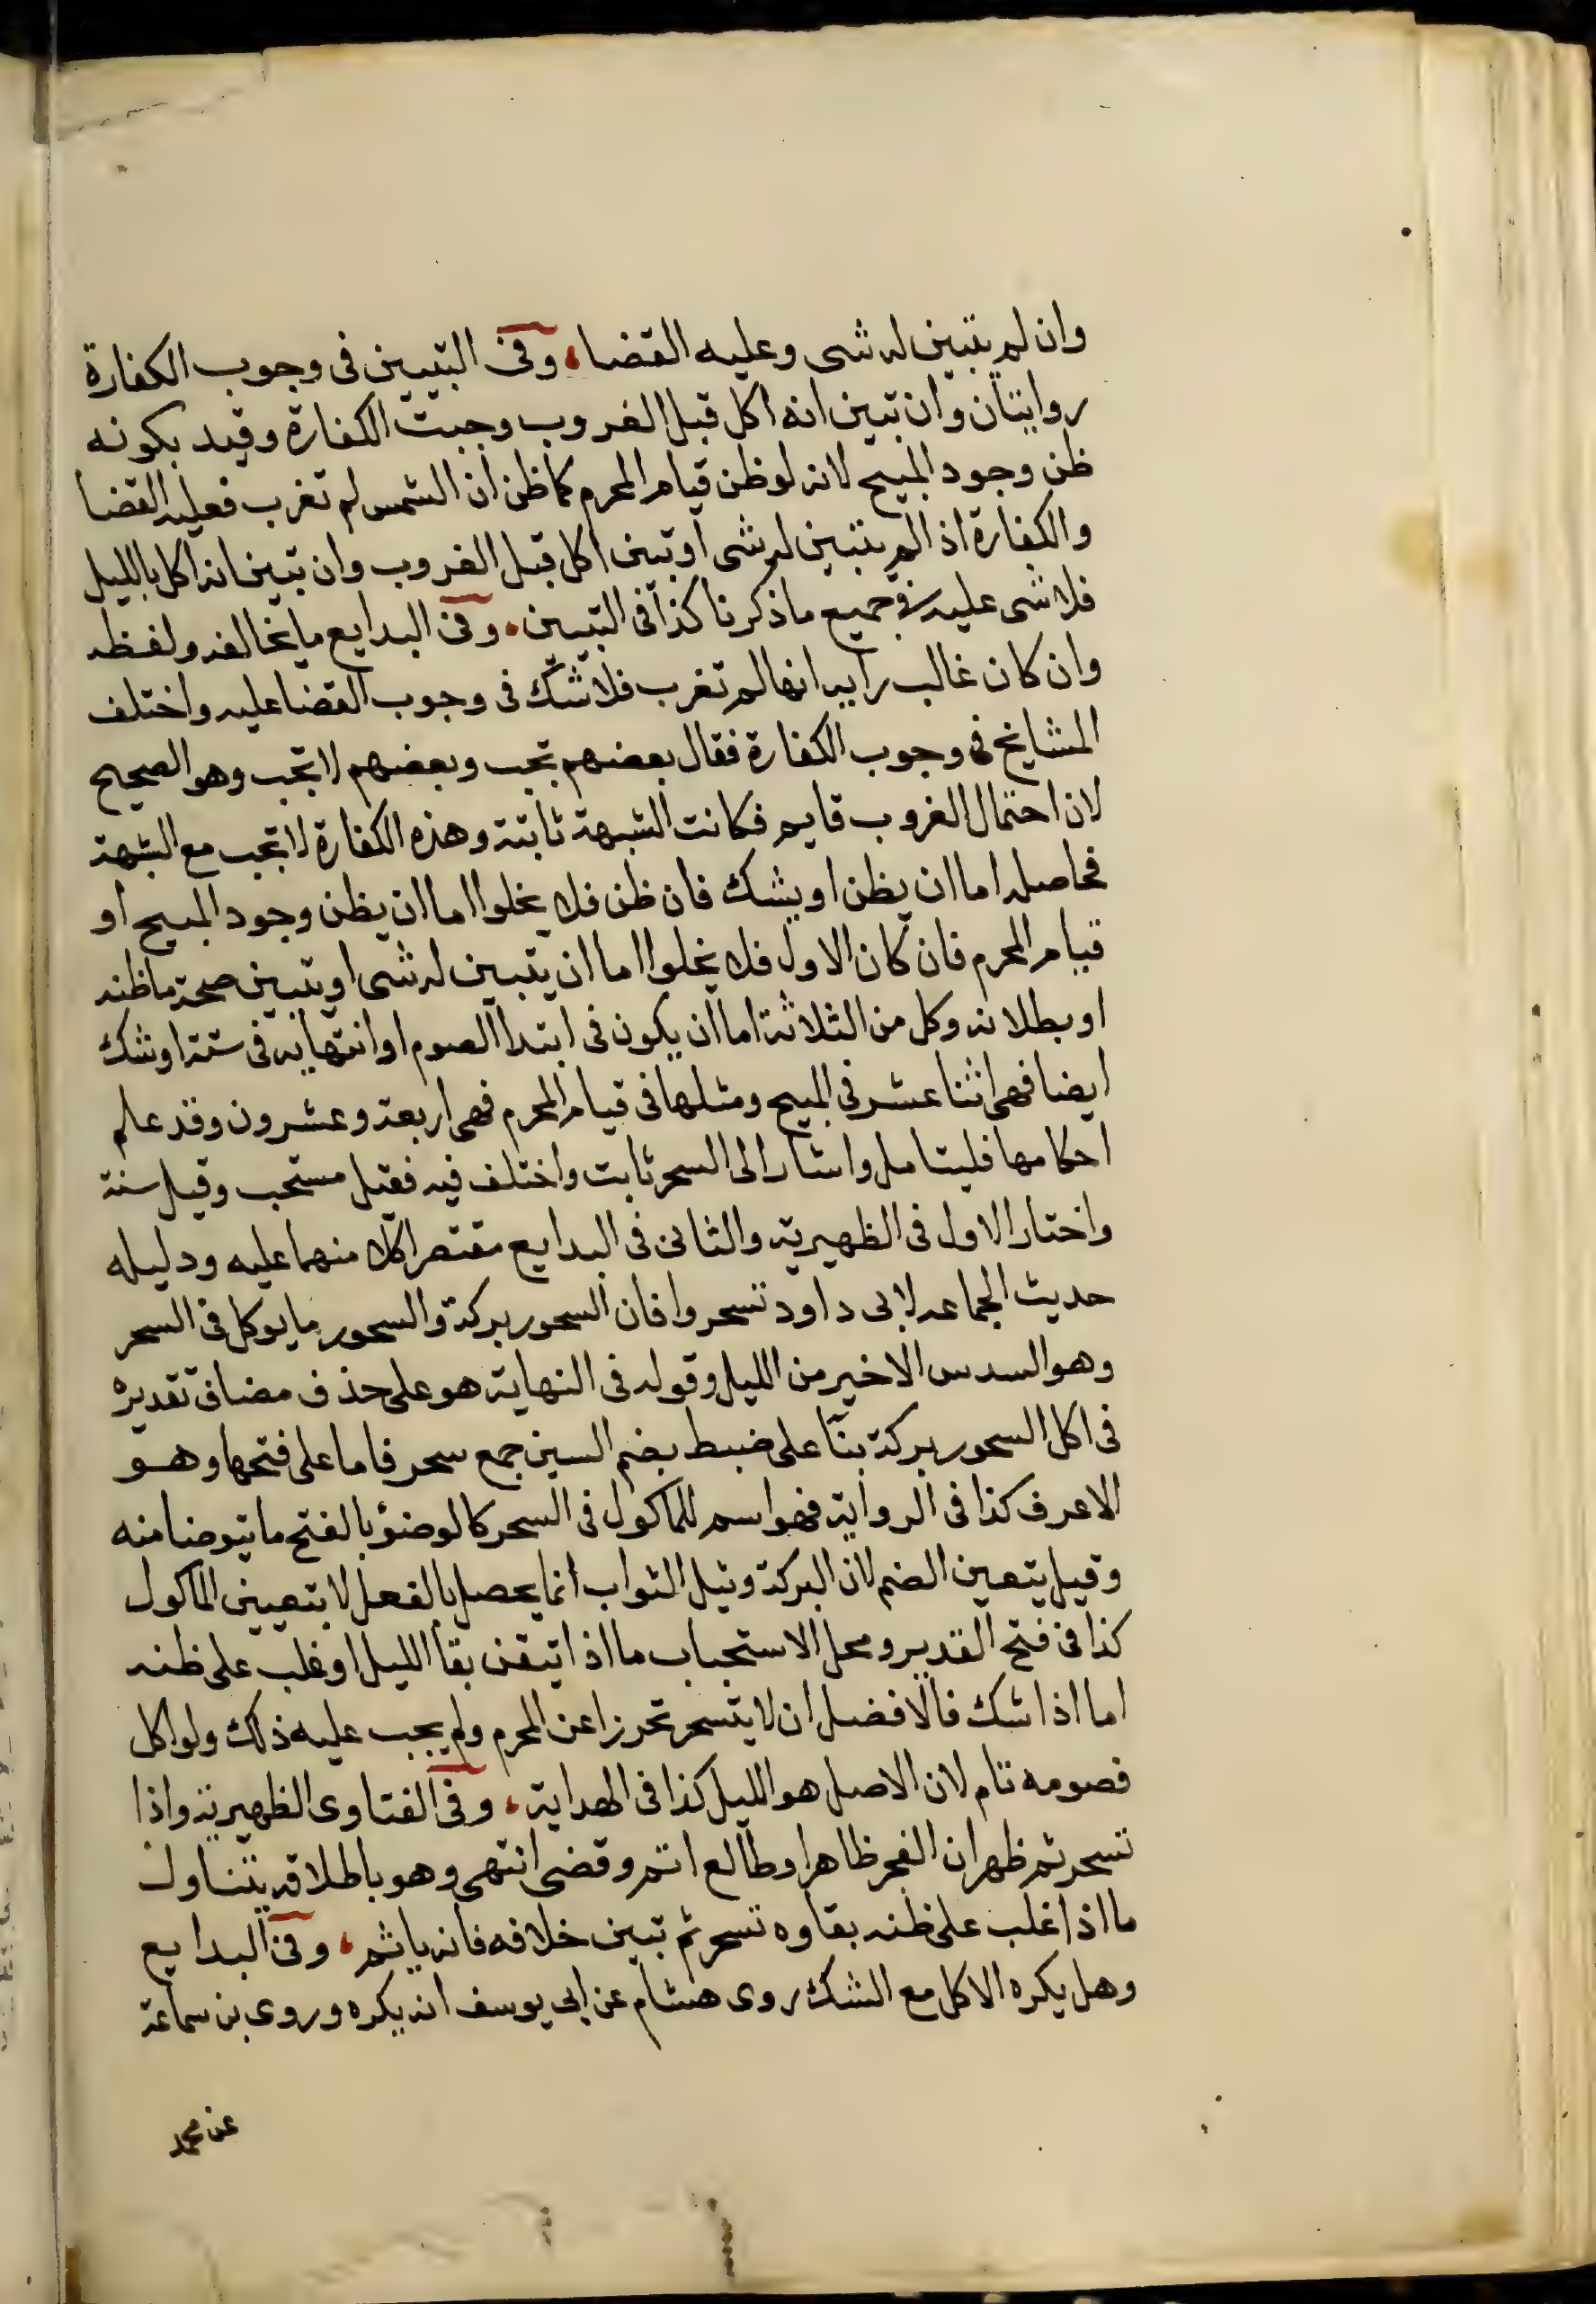 وان لم يتبين له شى وعليه القضا، وفى التبيين فى وجوب الكفارة
روايتان وان تبين انه اكل قبل الغروب وجبت الكفارة وقيد بكونه
ظن وجود المبيح لانه لو ظن قيام المحرم كما ظن ان الشمس لم تغرب فعليه القضا
والكفارة اذا لم يتبين له شى او تبين اكل قبل الغروب وان تبين انه اكل بالليل
فلا شى عليه فى جميع ما ذكرنا كذا فى التبيين. وفى البدايع ما يخالفه ولفظه
وان كان غالب رايه انها لم تغرب فلا شك فى وجوب القضا عليه واختلف
المشايخ فى وجوب الكفارة فقال بعضهم تجب وبعضهم لا تجب وهو الصحيح
لان احتمال الغروب قايم فكانت الشبهة ثابتة وهذه الكفارة لا تجب مع الشبهة
فحاصله اما ان يظن او يشك فان ظن فلا يخلوا اما ان يظن وجود المبيح او
قيام المحرم فان كان الاول فلا يخلوا اما ان يتبين له شى او يتبين صحة ما ظنه
او بطلانه وكل من الثلاثة اما ان يكون فى ابتدا الصوم او انتهايه فى ستة او شك
ايضا فهى اثنا عشر فى المبيح ومثلها فى قيام المحرم فهى اربعة وعشرون وقد علم
احكامها فليتامل واشار الى السحر ثابت واختلف فيه فقيل مستحب وقيل سنة
واختار الاول فى الظهيرية والثانى فى البدايع مقتصرا كلا منهما عليه ودليله
حديث الجماعه لابى داود تسحروا فان السحور بركة والسحور ما يوكل فى السحر
وهو السدس الاخير من الليل وقوله فى النهاية هو على حذف مضاف تقديره
فى اكل السحور بركة بنآ على ضبط بضم السين جمع سحر فاما على فتحها وهو
الاعرف كذا فى الرواية فهو اسم للماكول فى السحر كالوضؤ بالفتح ما يتوضا منه
وقيل يتعين الضم لان البركة ونيل الثواب انما يحصل بالفعل لا بتعيين الماكول
كذا فى فتح القدير ومحل الاستحباب ما اذا تيقن بقا الليل او غلب على ظنه
اما اذا شك فالافضل ان لا يتسحر تحرزا عن المحرم ولم يجب عليه ذلك ولو اكل
فصومه تام لان الاصل هو الليل كذا فى الهداية، وفى الفتاوى الظهيرية واذا
تسحر ثم ظهر ان الفجر ظاهر او طالع اتم وقضى انتهى وهو باطلاقه يتناول
ما اذا غلب على ظنه بقاوه تسحر ثم تبين خلافه فانه ياثم، وفى البدايع
وهل يكره الاكل مع الشك روى هشام عن ابى يوسف انه يكره وروى بن سماعة
عن محمد